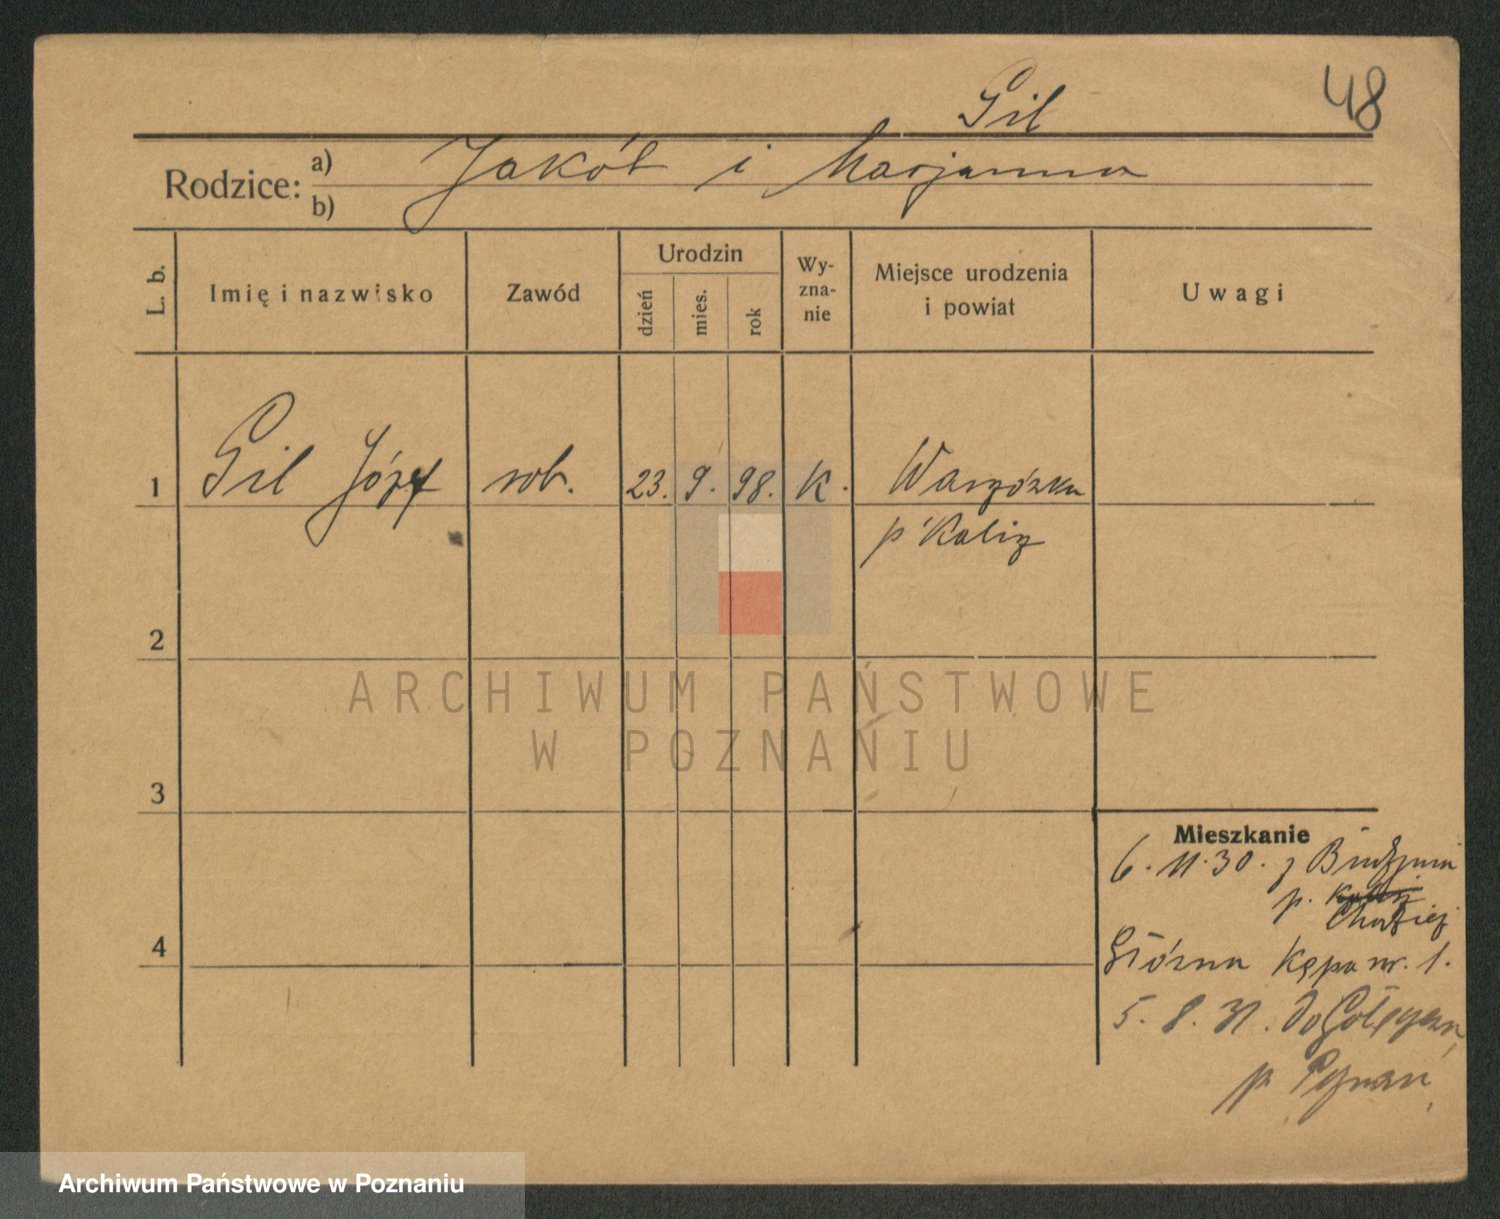 Gil
48
Rodzice:
a) Jakób i Marjanna
b)
L. b.
Imię i nazwisko
Zawód
Urodzin
dzień
mies.
rok
Wy-
zna-
nie
Miejsce urodzenia
i powiat
Uwagi
1 Gil Józef rob. 23. 9. 98. K.
p Kalisz
2
3
4
ARCHIWUM PAŃSTWOWE
W POZNANIU
Mieszkanie
6. 11. 30. z
p. Kalisz
Chodzież
Kępa nr. 1.
5. 8. 31. do
p. Poznań
Archiwum Państwowe w Poznaniu